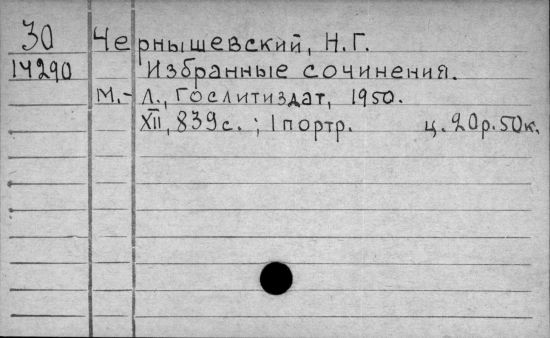 30 Чернышевский, Н.Г.
14290 Избранные сочинения.
М.-Л., Гослитиздат, 1950.
XII, 839с.; 1 портр. ц. 20р. 50к.